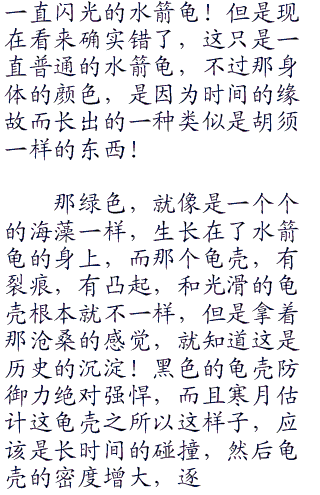 一直闪光的水箭龟！但是现
在看来确实错了，这只是一
直普通的水箭龟，不过那身
体的颜色，是因为时间的缘
故而长出的一种类似是胡须
一样的东西！
那绿色，就像是一个个
的海藻一样，生长在了水箭
龟的身上，而那个龟壳，有
裂痕，有凸起，和光滑的龟
壳根本就不一样，但是拿着
那沧桑的感觉，就知道这是
历史的沉淀！黑色的龟壳防
御力绝对强悍，而且寒月估
计这龟壳之所以这样子，应
该是长时间的碰撞，然后龟
壳的密度增大，逐